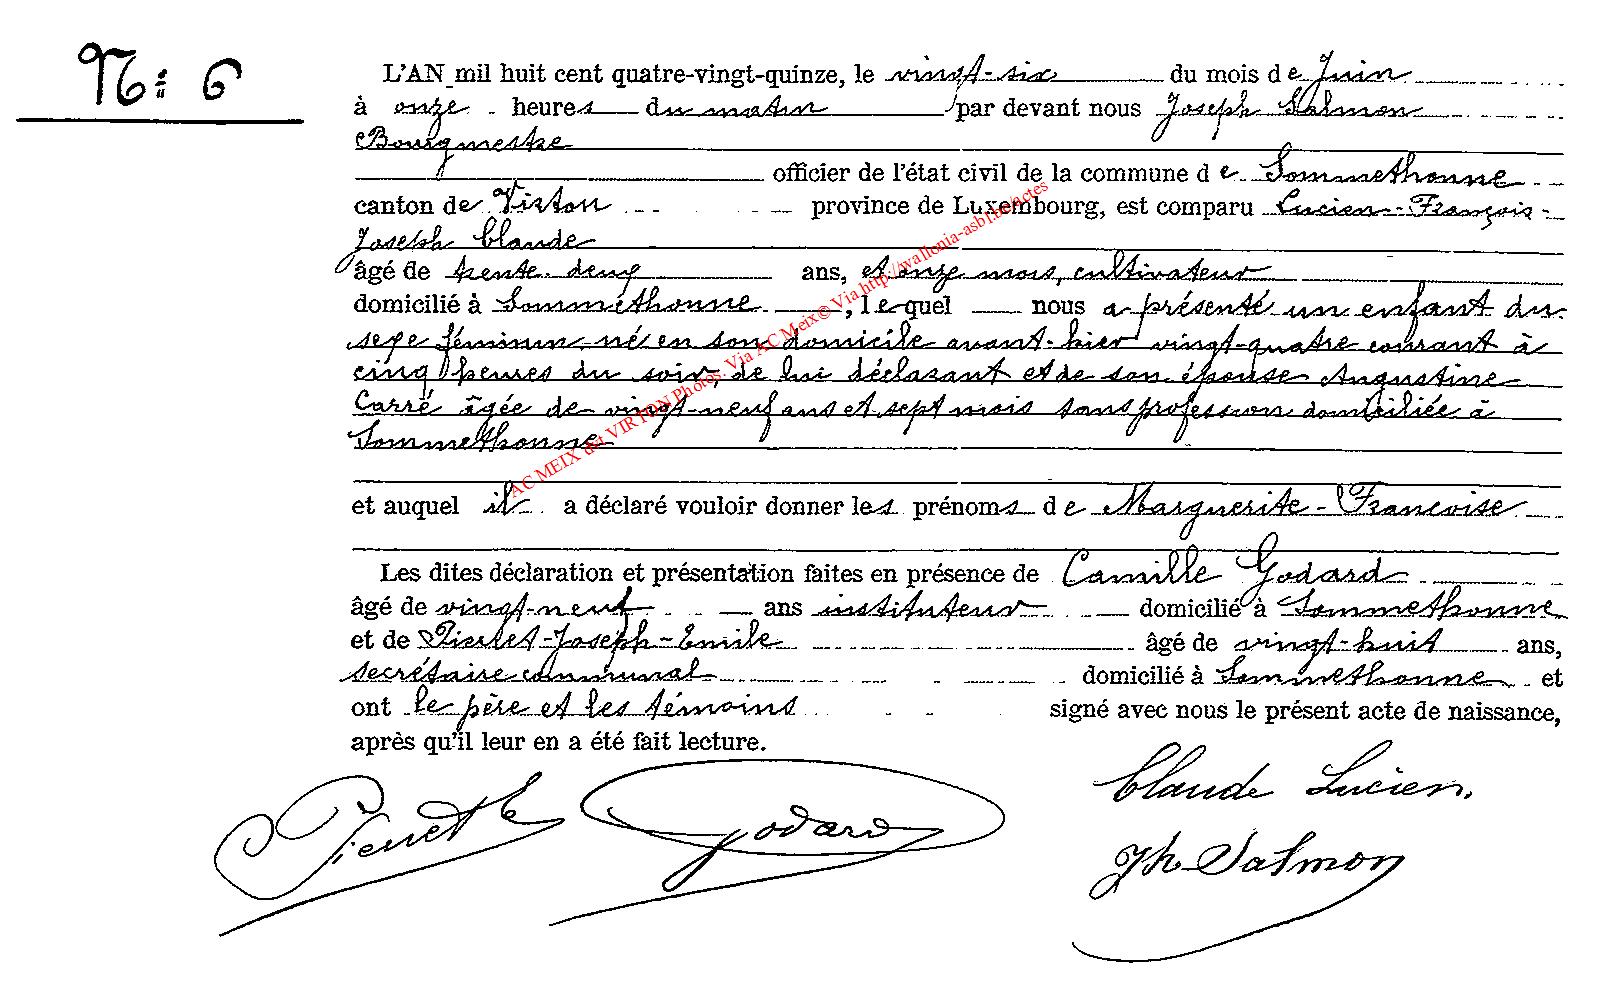 No: 6
L'AN mil huit cent quatre-vingt-quinze, le vingt-six du mois de Juin
à onze heures du matin par devant nous Joseph Salmon
Bourgmestre
officier de l'état civil de la commune de Sommethonne
canton de Virton province de Luxembourg, est comparu Lucien-François-
Joseph Claude
âgé de trente deux ans, et onze mois, cultivateur
domicilié à Sommethonne, lequel nous a présenté un enfant du
sexe féminin, né en son domicile avant-hier vingt-quatre courant à
cinq heures du soir, de lui déclarant et de son épouse Augustine
Carré âgée de vingt-neuf ans et sept mois sans profession domiciliée à
Sommethonne
et auquel il a déclaré vouloir donner les prénoms de Marguerite-Francoise
Les dites déclaration et présentation faites en présence de Camille Godard
âgé de vingt-neuf ans instituteur domicilié à Sommethonne
et de Pierret-Joseph-Emile âgé de vingt-huit ans,
secrétaire communal domicilié à Sommethonne et
ont le père et les témoins signé avec nous le présent acte de naissance,
après qu'il leur en a été fait lecture.
Claude Lucien.
Pierret E Godard
Jh Salmon
AC MEIX dvt VIRTON Photos. Via AC Meix© Via http://wallonia-asbl.be/actes